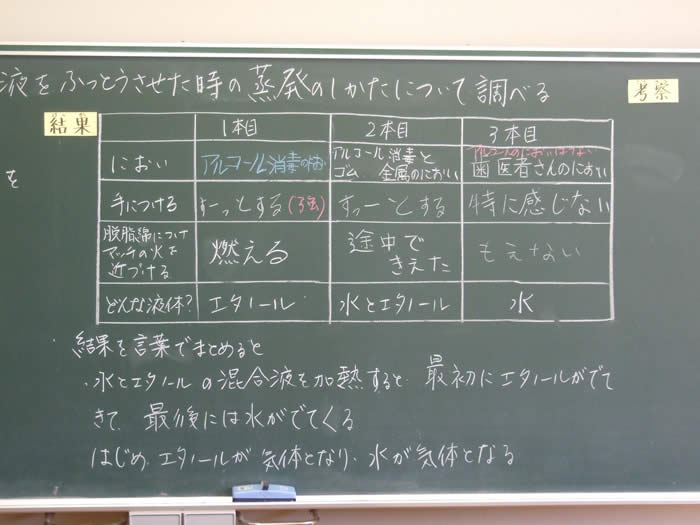 液をふっとうさせた時の蒸発のしかたについて調べる
考察
結果
を
1本目 2本目 3本目
におい アルコール消毒のにおい アルコール消毒とゴム 金属のにおい アルコールのにおいはしない 歯医者さんのにおい
手につける すーっとする(強) すっーとする 特に感じない
脱脂綿につけ
マッチの火を
近づける
燃える 途中できえた もえない
どんな液体? エタノール 水とエタノール 水
結果を言葉でまとめると
・水とエタノールの混合液を加熱すると、最初にエタノールがでて
きて、最後には水がでてくる
はじめ、エタノールが気体となり、水が気体となる